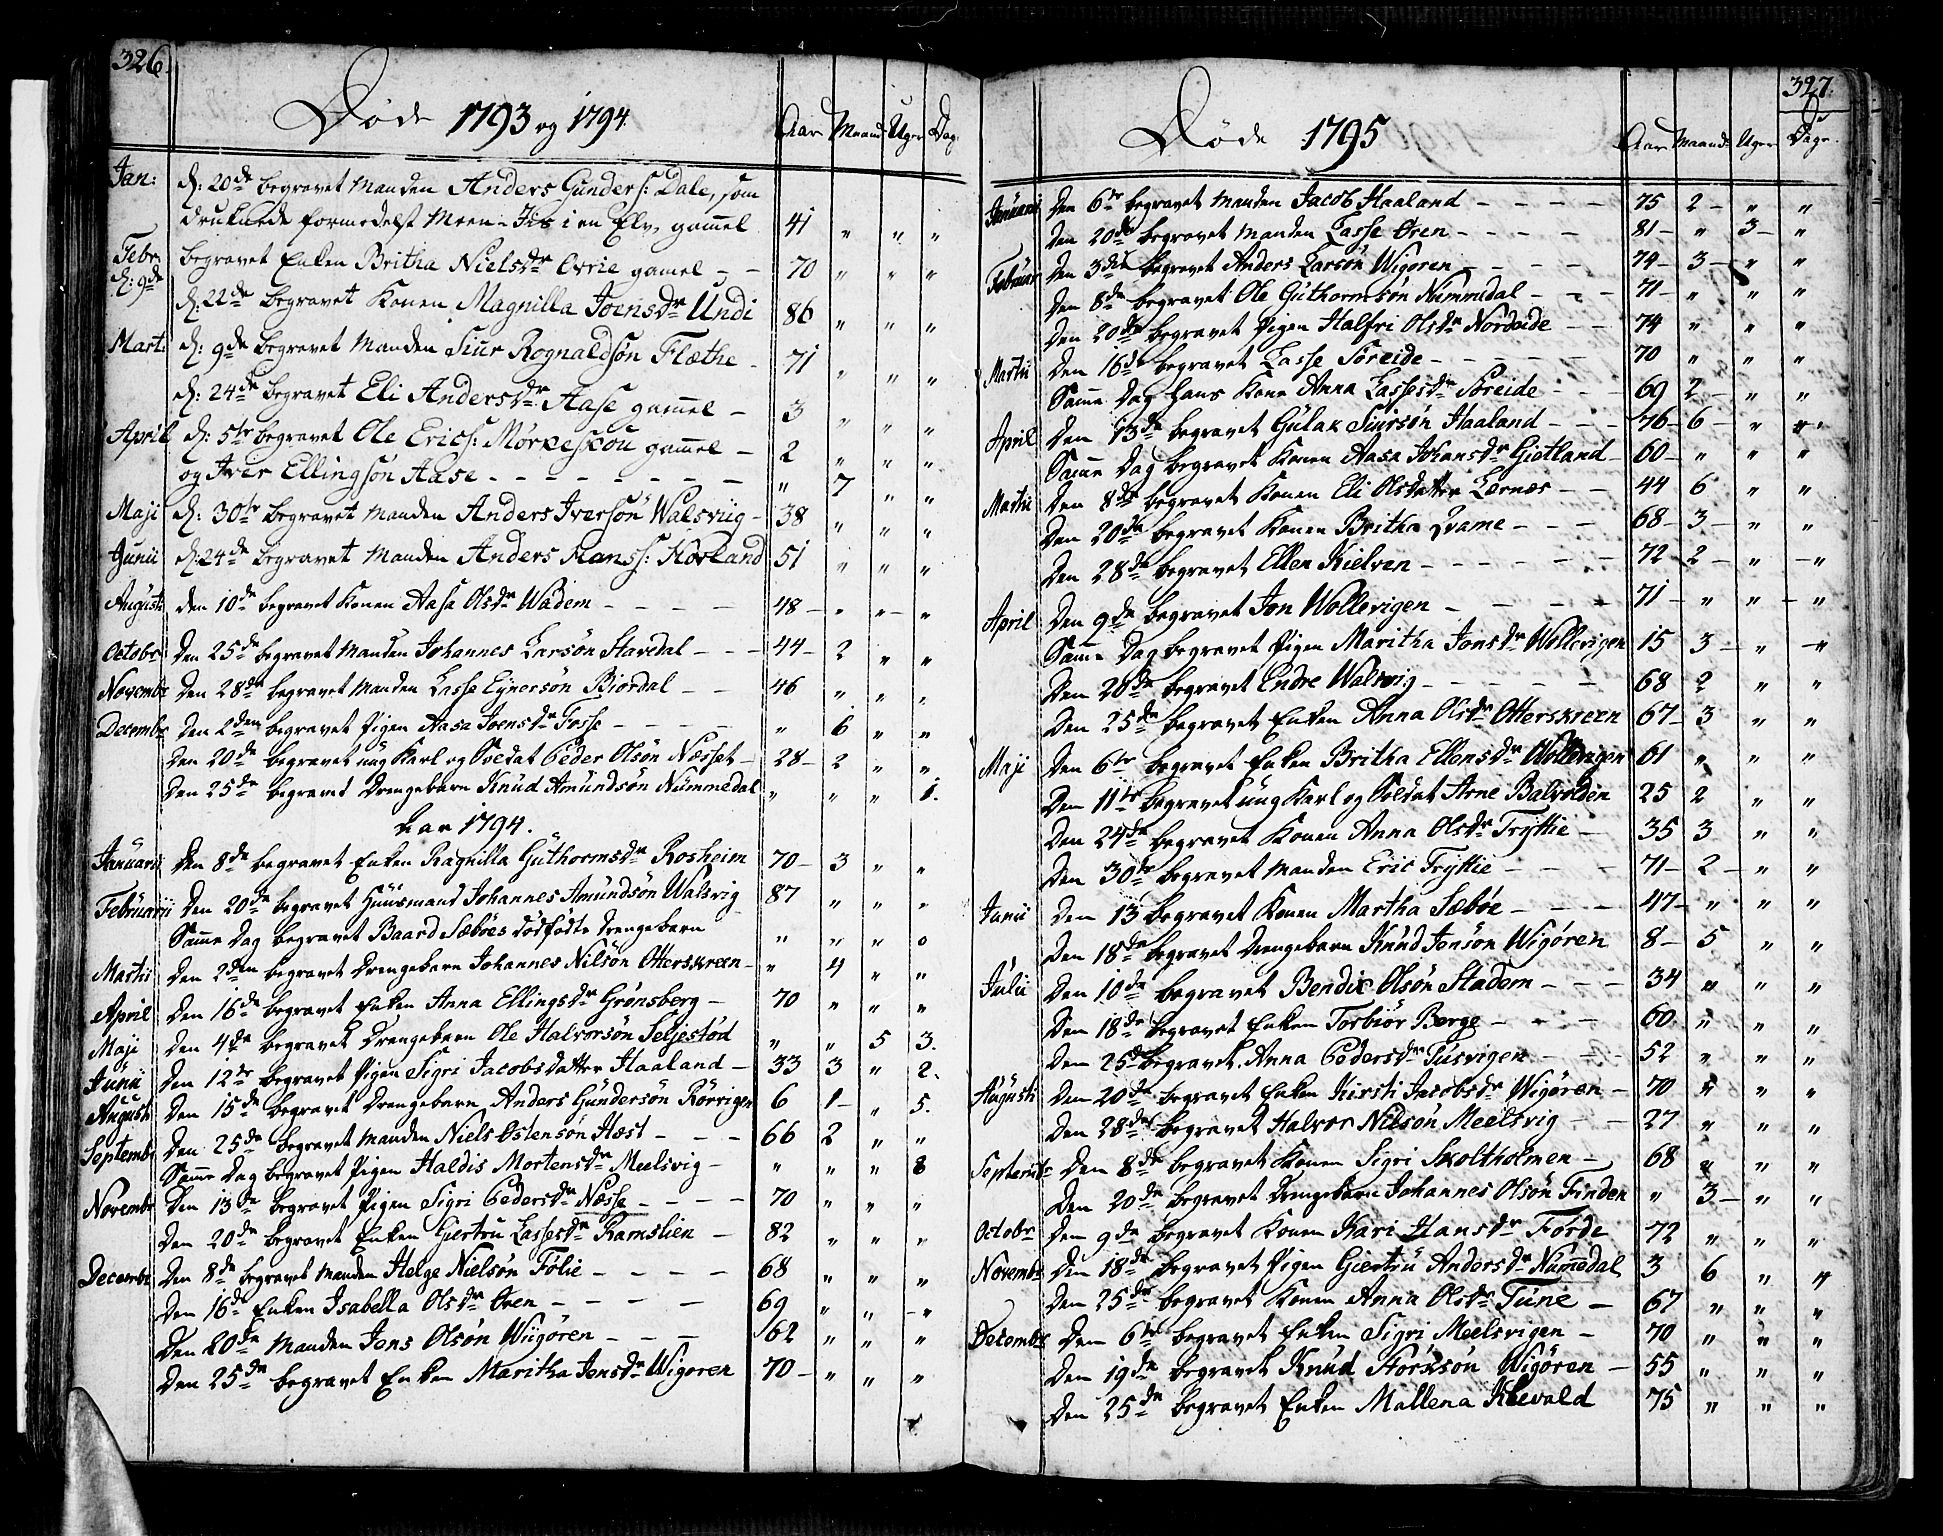 326.
Døde 1793 og 1794.
Aar Maand Uger Dag.
Jan: d: 20de begravet Manden Anders Gunders: Dale, som
druknede formedelst Meen-Iis i en Elv, gamel 41 " " "
Febr. d: 9de begravet Enken Britha Nielsdr Evrie gamel - - 70 " " "
d: 22de begravet Konen Magnilla Joensdr Undi 86 " " "
Mart: d: 9de begravet Manden Siur Rognaldsøn Flæthe - 71 " " "
d: 24de begravet Eli Andersdr Aase gamel - 3 " " "
April d: 5te begravet Ole Erics: Mørkeskou gamel - 2 " " "
og Iver Ellingsøn Aase - - - - - - - " 7 " "
Maji d: 30te begravet Manden Anders Iversøn Walsviig - 38 " " "
Junii d: 24de begravet Manden Anders Hanss: Hovland 51 " " "
Augusti den 10de begravet Konen Aasa Olsdr Wadem - - - - 48 - " " "
Octobr Den 25de begravet Manden Johannes Larsøn Stavedal - - - 44 - 2 " "
Novembr Den 28de begravet Manden Lasse Eynersøn Biordal - - 46 " " "
Decembr Den 2den begravet Pigen Aasa Joensdr Fosse - - - - " 6 " "
Den 20de begravet ung Karl og Soldat Peder Olsøn Næsset - 28 - 2 " "
Den 25de begravet Drengebarn Knud Amundsøn Nummedal " " " 1.
har 1794.
Januarii Den 8de begravet Enken Ragnilla Guthormsdr Rosheim 70 - 3 " "
Februarii Den 20de begravet Huusmand Johannes Amundsøn Walsvig 87 " " "
Samme Dag begravet Baard Sæbøes dødfødte Drengebarn " " " 0
Martii Den 2den begravet Drengebarn Johannes Nilsøn Otterskreen - " 4 " "
April Den 16de begravet Enken Anna Ellingsdr Grønsberg - 70 " " "
Maji Den 4de begravet Drengebarn Ole Halvorsøn Seljestød " " 5 3.
Junii Den 12te begravet Pigen Sigri Jacobsdatter Haaland - 33 3 " 2.
Augusti Den 15de begravet Drengebarn Anders Gundersøn Rørvigen 6 1 - " 5.
Septembr Den 25de begravet Manden Niels Ostensøn Hæst - - - 66 2 " "
Samme Dag begravet Pigen Haldis Mortensdr Meelsvig - " " " 8
Novembr Den 13de begravet Pigen Sigri Pedersdr Næsse - - - - 70 " " "
Den 20de begravet Enken Giertru Lassesdr Ramslien - 82 " " "
Decembr Den 8de begravet Manden Helge Nielsøn Følie - - - - 68 " " "
Den 16de Enken Isabella Olsdr Øren - - - - 69 " " "
Den 20de Manden Jens Olsøn Wiigøren - - - 62 " " "
Den 25de begravet Enken Maritha Jensdr Wigøren 70 - " " "
327.
Døde 1795
Aar Maand: Uger Dage.
Januarii Den 6te begravet Manden Jacob Haaland - - - - 75 2 - " "
Den 20de begravet Manden Lasse Øren - - - - 81 - " 3 - "
Februar Den 3die begravet Anders Larsøn Wigøren - - - - 74 - 3 - " "
Den 8de begravet Ole Guthormsøn Nummedal - - - 71 - " " "
Den 20de begravet Pigen Halfri Olsdr Nordeide - - 74 " " "
Martii Den 16de begravet Lasse Søreide - - - - - 70 " " "
Samme Dag hans Kone Anna Lassesdr Søreide - - - 69 2 - " "
April Den 13de begravet Gulak Siursøn Haaland - - - 76 - 6 - " "
Samme Dag begravet Konen Aasa Johansdr Gietland - 60 - " " "
Martii Den 8de begravet Konen Eli Olsdatter Lernæs - - 44 6 " "
Den 20de begravet Konen Britha Qvame - - - 68 - 3 - " "
Den 28de begravet Ellen Kielven - - - - - - 72 2 - " "
April Den 9de begravet Jon Wollevigen - - - - 71 - " " "
Samme Dag begravet Pigen Maritha Jonsdr Wollevigen 15 3 - " "
Den 20de begravet Endre Walsvig - - - - - 68 2 " "
Den 25de begravet Enken Anna Olsdr Otterskreen 67 - 3 " "
Maji Den 6te begravet Enken Britha Ellensdr Wollevigen 61 " " "
Den 11te begravet ung Karl og Soldat Arne Balvolden 25 2 " "
Den 24de begravet Konen Anna Olsdr Tryttie - 35 3 " "
Den 30te begravet Manden Eric Tryttie - - - 71 - 2 - " "
Junii Den 13 begravet Konen Martha Sæbøe - - - 47 - " " "
Den 18de begravet Drengebarn Knud Jonsøn Wigøren 8 - 5 " "
Julii Den 10de begravet Bendix Olsøn Stadem - - - 34 " " "
Den 18de begravet Enken Torbiør Berge - - - 60 " " "
Den 25de begravet Anna Pedersdr Tusvigen - - - 52 " " "
Augusti Den 20de begravet Enken Kirsti Jacobsdr Wigøren - 70 " " "
Den 28de begravet Halvor Nilsøn Meelsvig - - 27 " " "
Septembr Den 8de begravet Konen Sigri Skoltholmen - 68 " " "
Den 20de begravet Drengebarn Johannes Olsøn Finden " 3 - " "
Octobr Den 9de begravet Konen Kari Hansdr Førde 72 " " "
Novembr Den 18de begravet Pigen Giertru Andersdr Numedal 3 6 " "
Den 25de begravet Konen Anna Olsdr Tune - 67 " " "
Decembr Den 6te begravet Enken Sigri Meelsvigen - 70 " " "
Den 19de begravet Knud Storksøn Wigøren - 55 " " "
Den 25de begravet Enken Mallena Klevold 75 " " "